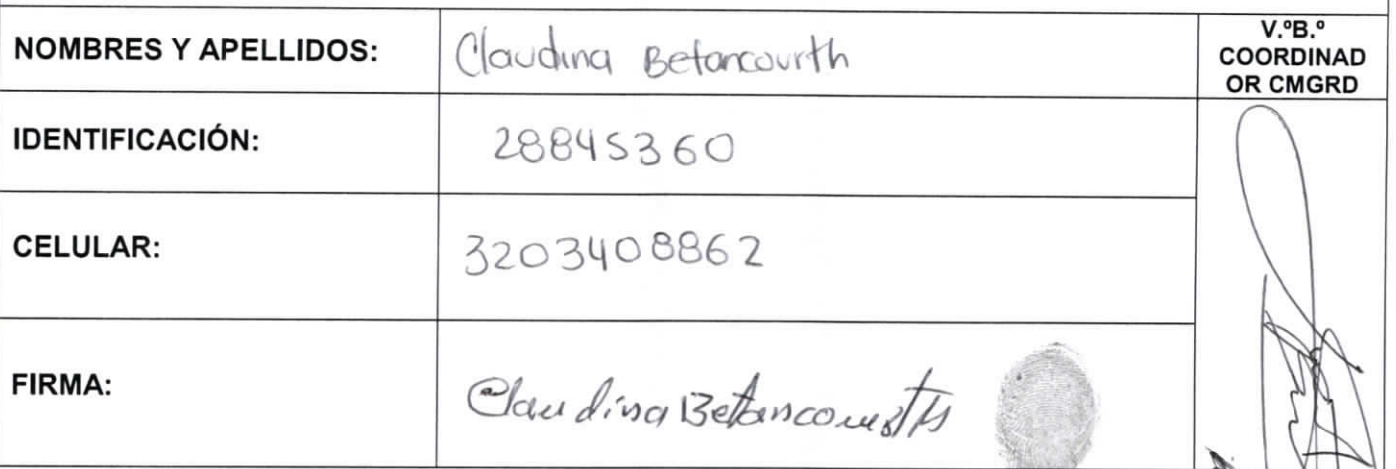 NOMBRES Y APELLIDOS: Claudina Betancourth
V.ºB.º
COORDINAD
OR CMGRD
IDENTIFICACIÓN: 28845360
CELULAR: 3203408862
FIRMA: Claudina Betancourth